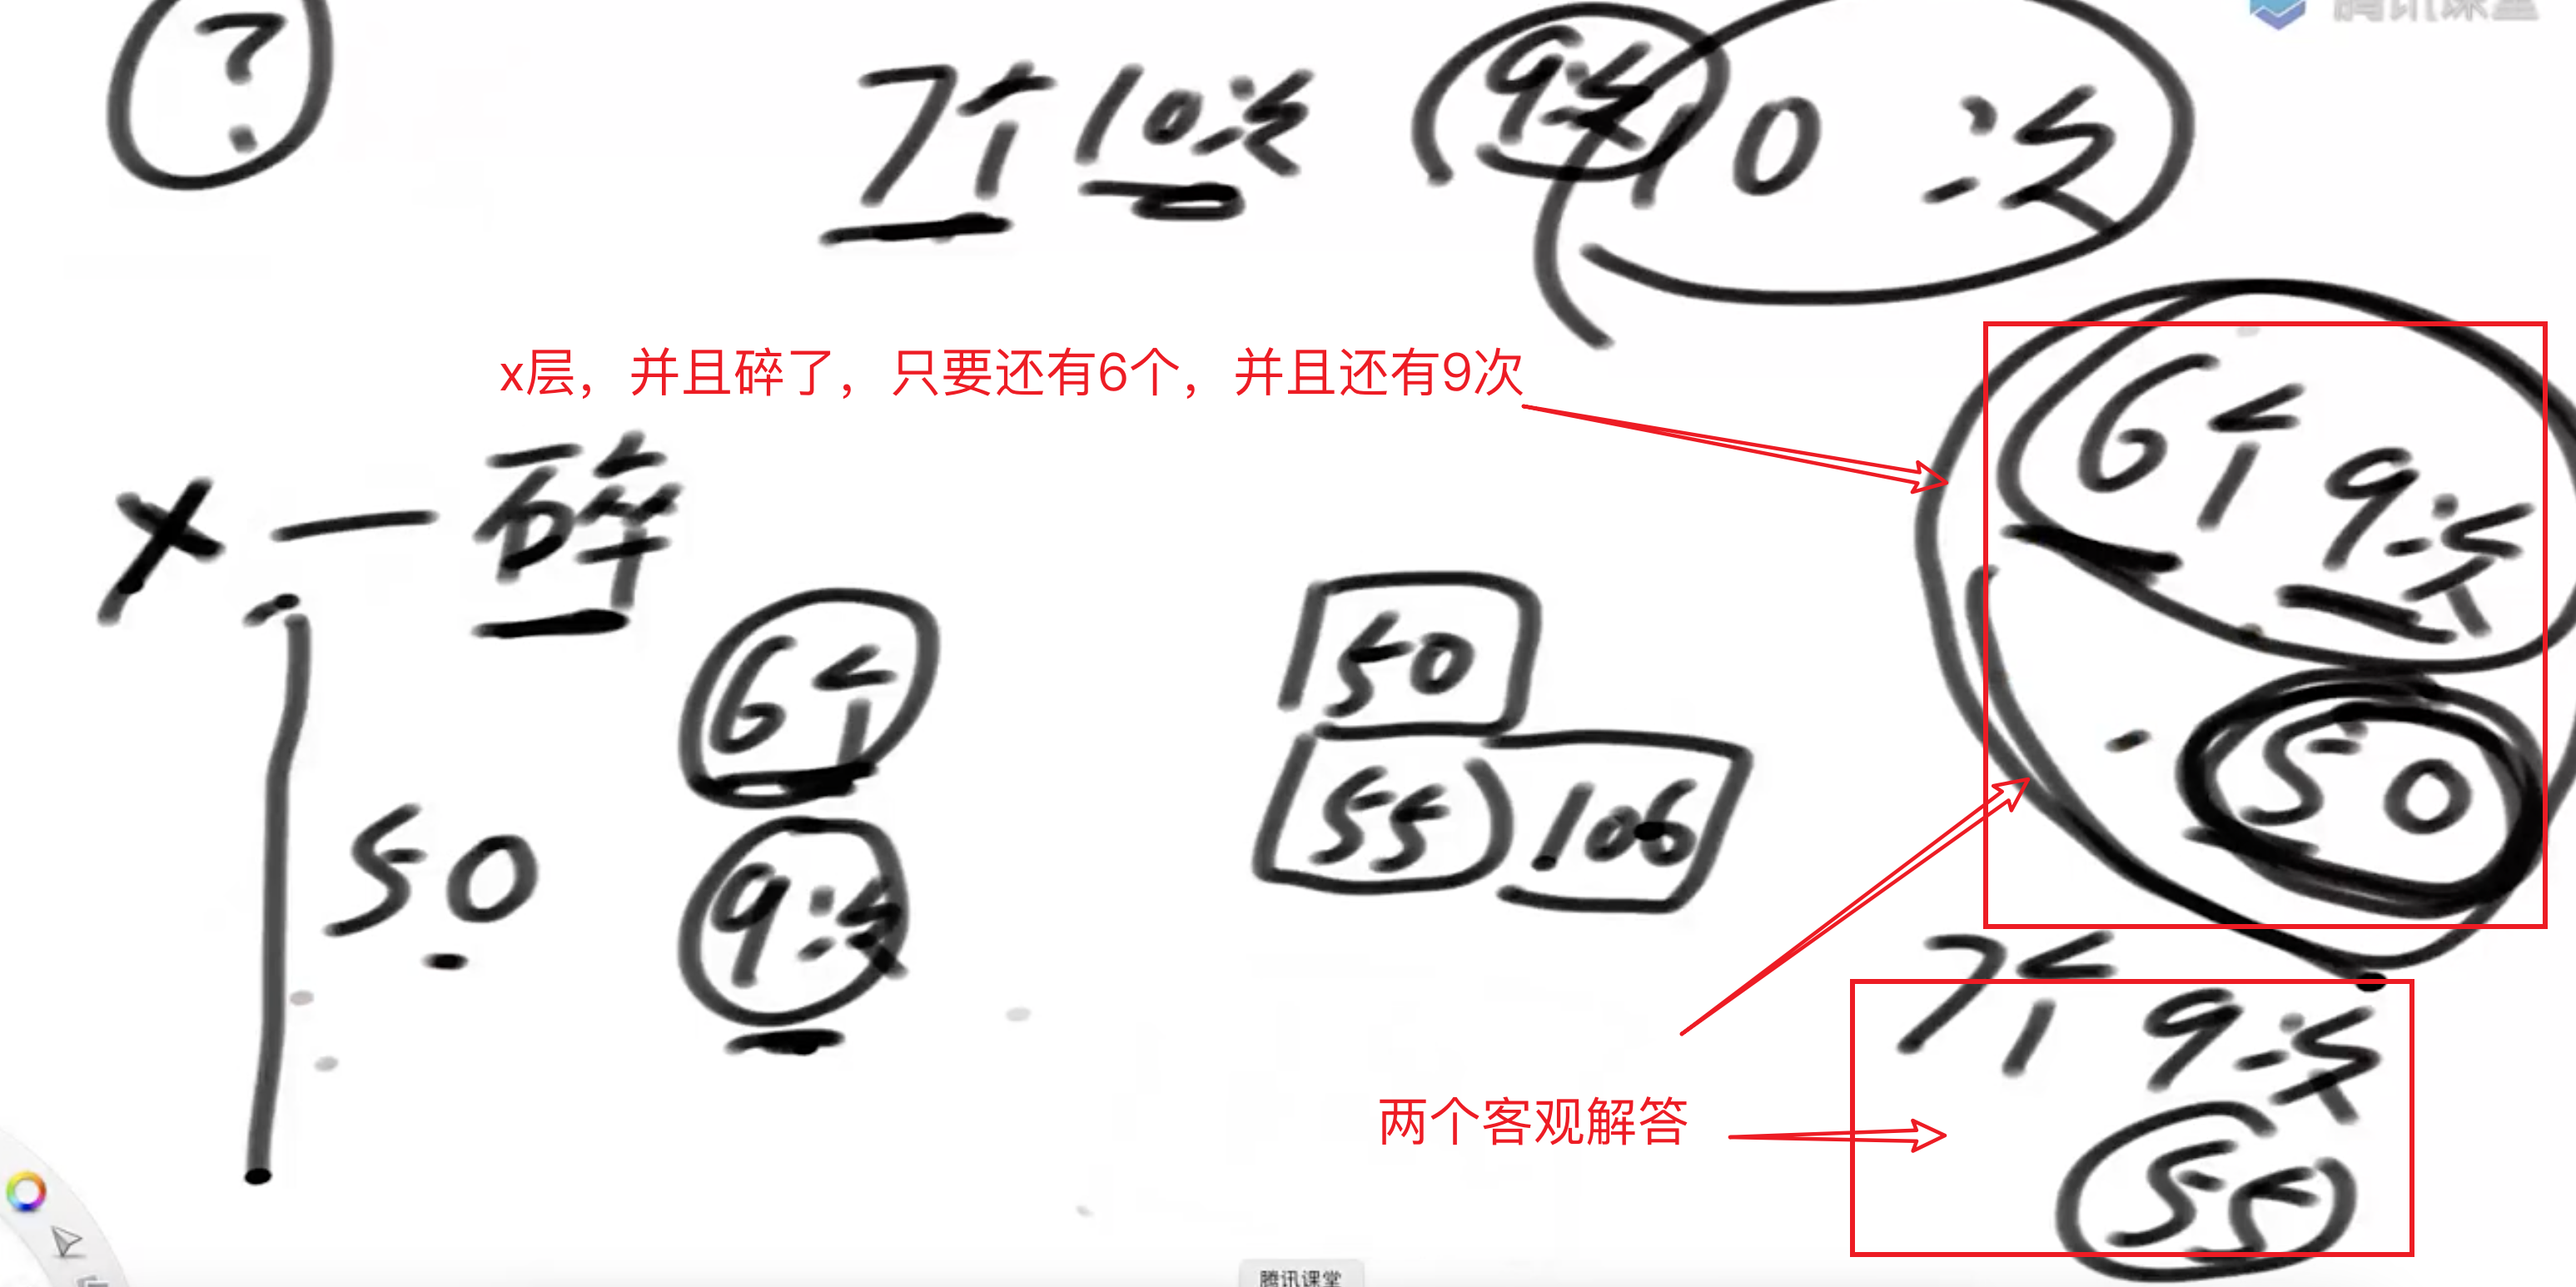 ?
腾讯课堂
7个 10次
9次
10次
x层，并且碎了，只要还有6个，并且还有9次
x — 碎
6个
9次
50
50
55 106
6个 9次
50
7个 9次
55
两个客观解答
腾讯课堂